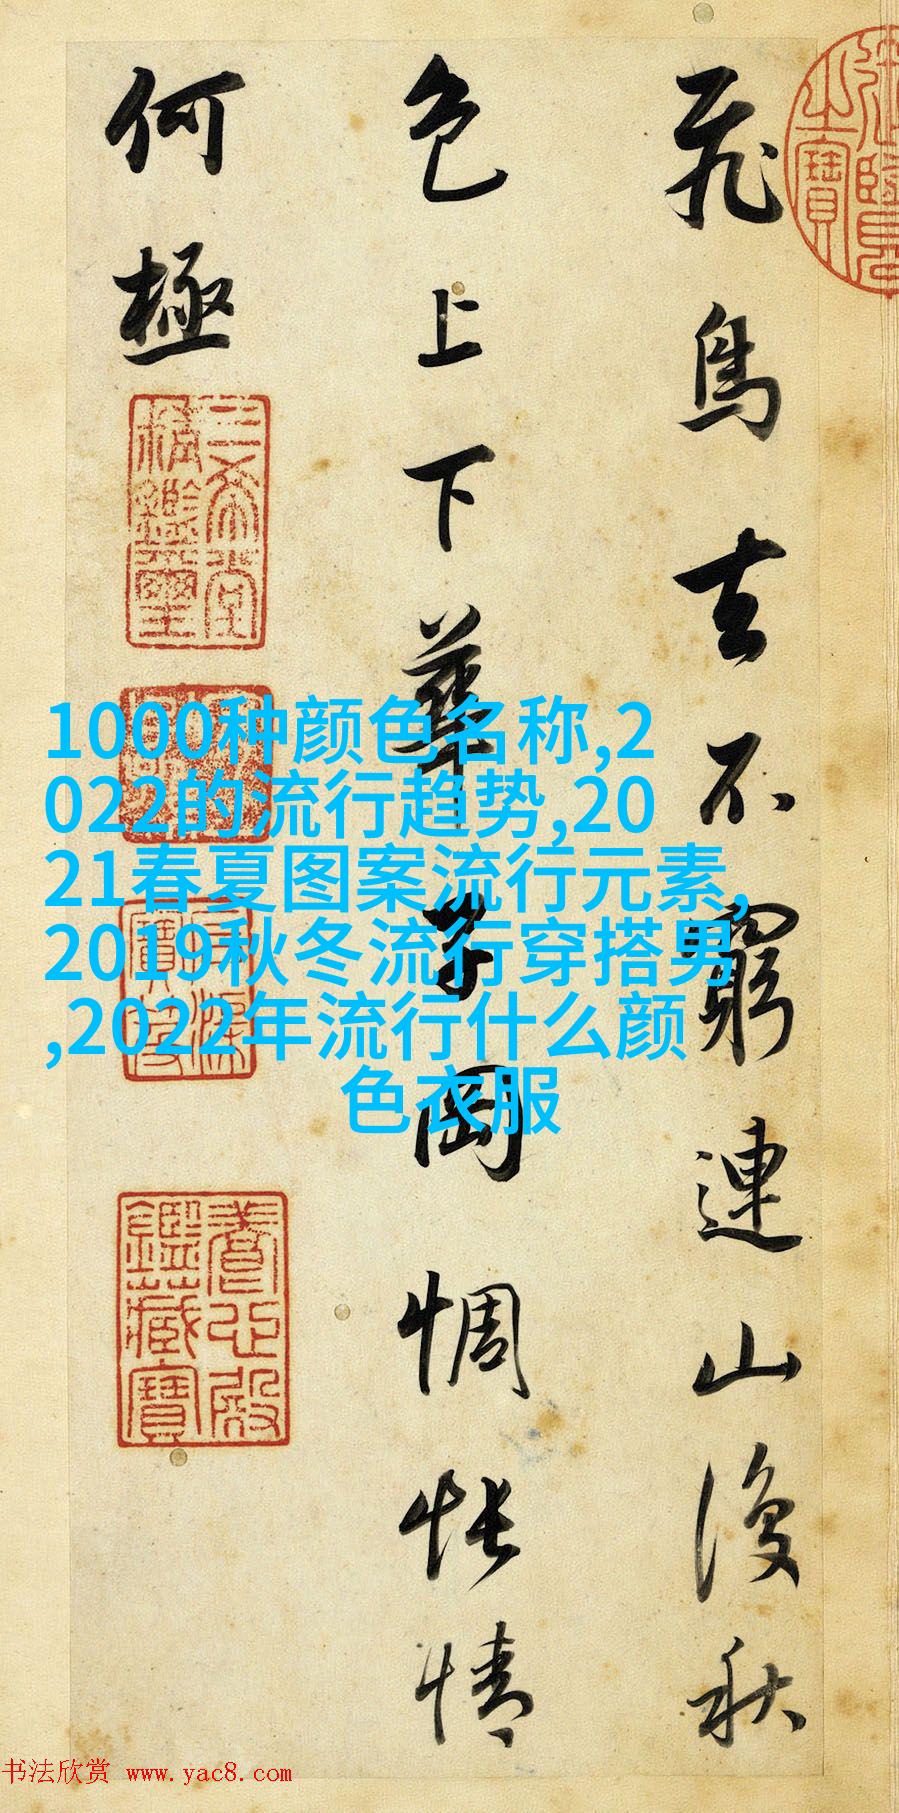 飛鳥去不窮連山復秋
色上下華子岡惆悵情
何極
三希堂
精鑑璽
養心殿
鑑藏寶
1000种颜色名称,2
022的流行趋势,20
21春夏图案流行元素,
2019秋冬流行穿搭男
,2022年流行什么颜
色衣服
书法欣赏 www.yac8.com